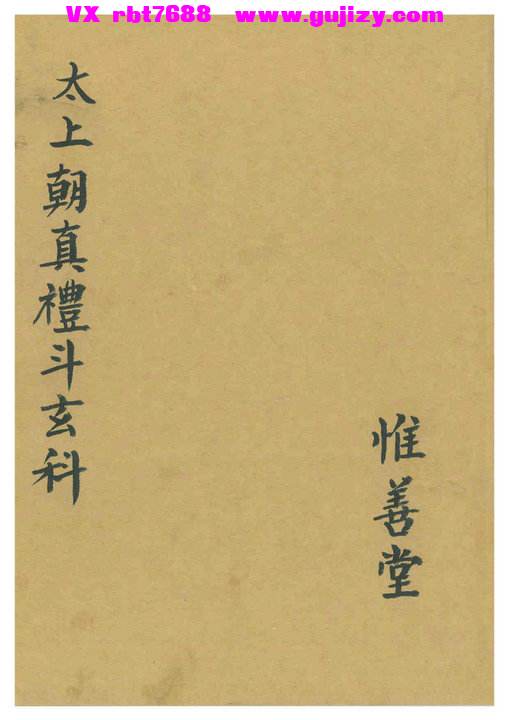 VX rbt7688 www.gujizy.com
太上朝真禮斗玄科
惟善堂